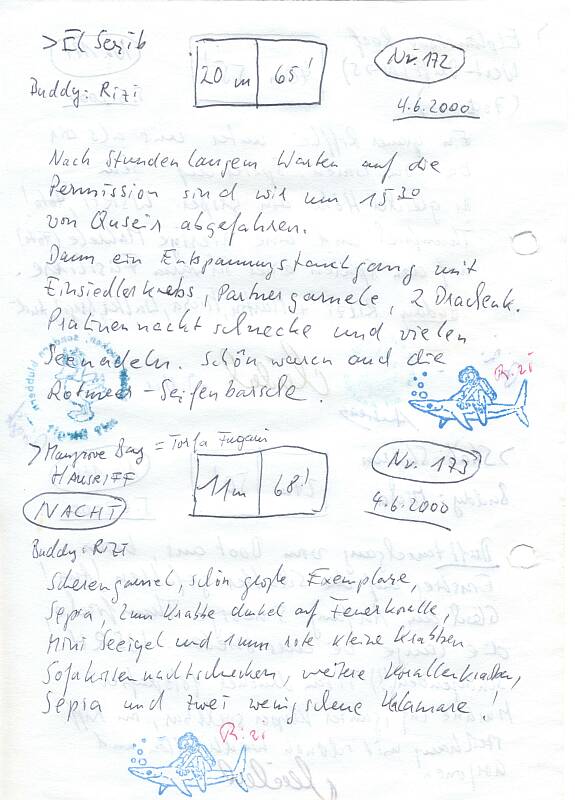 > El Serib
20 m 65'
Nr. 172
Buddy: Rizi
4.6.2000
Nach Stundenlangem Warten auf die
Permission sind wir um 15 30
von Quseir abgefahren.
Dann ein Entspannungstauchgang mit
Einsiedlerkrebs, Partnergarnele, 2 Drachenk.
Pratinennacktschnecke und vielen
Seenadeln. Schön waren auch die
Rotmeer-Seifenbarsche.
Rizi
> Mangrove Bay = Torfa
HAUSRIFF
11m 68'
Nr. 173
NACHT
4.6.2000
Buddy: Rizi
Scherengarnel, schön große Exemplare,
Sepia, 2mm Krabbe dunkel auf Feuerkoralle,
Mini Seeigel und 1mm rote kleine Krabben
Sofakissennacktschnecken, weitere Korallenkrabben,
Sepia und zwei wenig scheue Kalamare!
Rizi